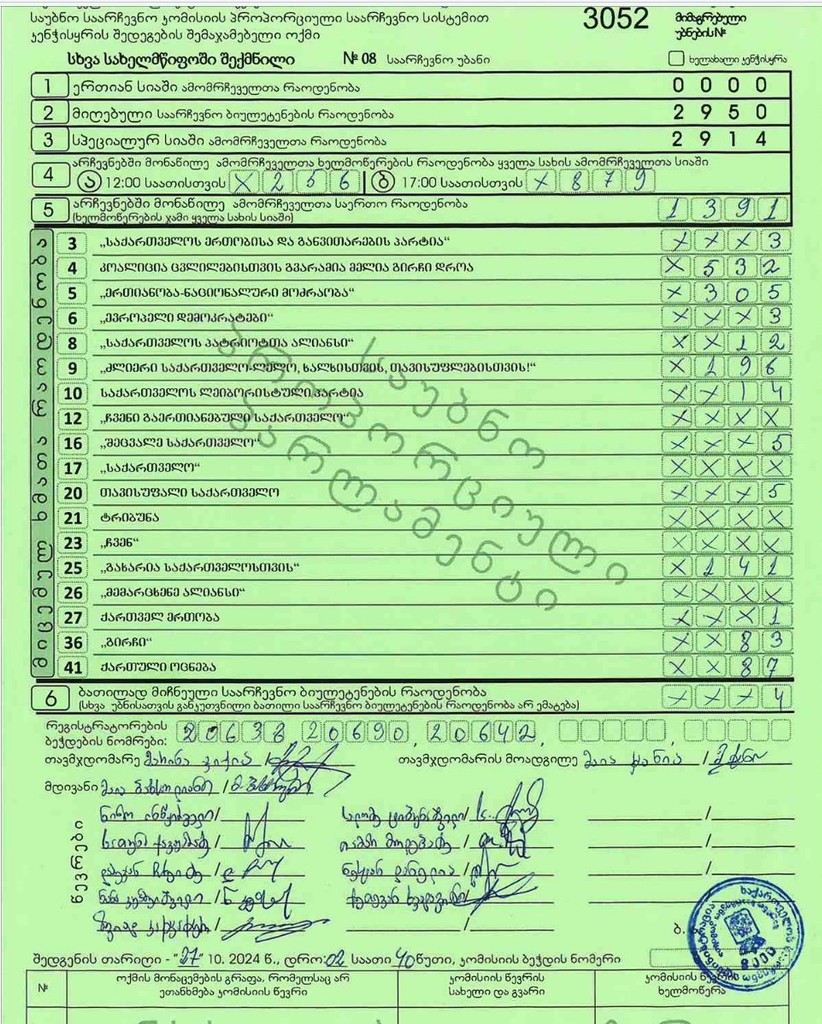 საუბნო საარჩევნო კომისიის პროპორციული საარჩევნო სისტემით
კენჭისყრის შედეგების შემაჯამებელი ოქმი
3052
მიმაგრებული
უბნების №
სხვა სახელმწიფოში შექმნილი № 08 საარჩევნო უბანი
ხელახალი კენჭისყრა
1 ერთიან სიაში ამომრჩეველთა რაოდენობა 0 0 0 0
2 მიღებული საარჩევნო ბიულეტენების რაოდენობა 2 9 5 0
3 სპეციალურ სიაში ამომრჩეველთა რაოდენობა 2 9 1 4
4 არჩევნებში მონაწილე ამომრჩეველთა ხელმოწერების რაოდენობა ყველა სახის ამომრჩეველთა სიაში
ა 12:00 საათისთვის X 2 5 6 ბ 17:00 საათისთვის X 8 7 9
5 არჩევნებში მონაწილე ამომრჩეველთა საერთო რაოდენობა 1 3 9 1
(ხელმოწერების ჯამი ყველა სახის სიაში)
მიცემულ ხმათა რაოდენობა
3 „საქართველოს ერთობისა და განვითარების პარტია“ X X X 3
4 კოალიცია ცვლილებისთვის გვარამია მელია გირჩი დროა X 5 3 2
5 „ერთიანობა-ნაციონალური მოძრაობა“ X 3 0 5
6 „ევროპელი დემოკრატები“ X X X 3
8 „საქართველოს პატრიოტთა ალიანსი“ X X 1 2
9 „ძლიერი საქართველო-ლელო, ხალხისთვის, თავისუფლებისთვის!“ X 1 9 6
10 საქართველოს ლეიბორისტული პარტია X X 1 4
12 „ჩვენი გაერთიანებული საქართველო“ X X X X
16 „შეცვალე საქართველო“ X X X 5
17 „საქართველო“ X X X X
20 თავისუფალი საქართველო X X X 5
21 ტრიბუნა X X X X
23 „ჩვენ“ X X X X
25 „გახარია საქართველოსთვის“ X 1 4 1
26 „მემარცხენე ალიანსი“ X X X X
27 ქართველ ერთობა X X X 1
36 „გირჩი“ X X 8 3
41 ქართული ოცნება X X 8 7
საუბნო
პროპორციული
პარლამენტი
6 ბათილად მიჩნეული საარჩევნო ბიულეტენების რაოდენობა X X X 4
(სხვა უბნისათვის განკუთვნილი ბათილი საარჩევნო ბიულეტენების რაოდენობა არ ემატება)
რეგისტრატორების
ბეჭდების ნომრები: 20638, 20690, 20642,
თავმჯდომარე თავმჯდომარის მოადგილე მაია
მდივანი მაია
წევრები
ნინო
ბ. ა.
შედგენის თარიღი - "27" 10. 2024 წ., დრო: 02 საათი 40 წუთი, კომისიის ბეჭდის ნომერი
№ ოქმის მონაცემების გრაფა, რომელსაც არ ეთანხმება კომისიის წევრი კომისიის წევრის სახელი და გვარი კომისიის წევრის ხელმოწერა